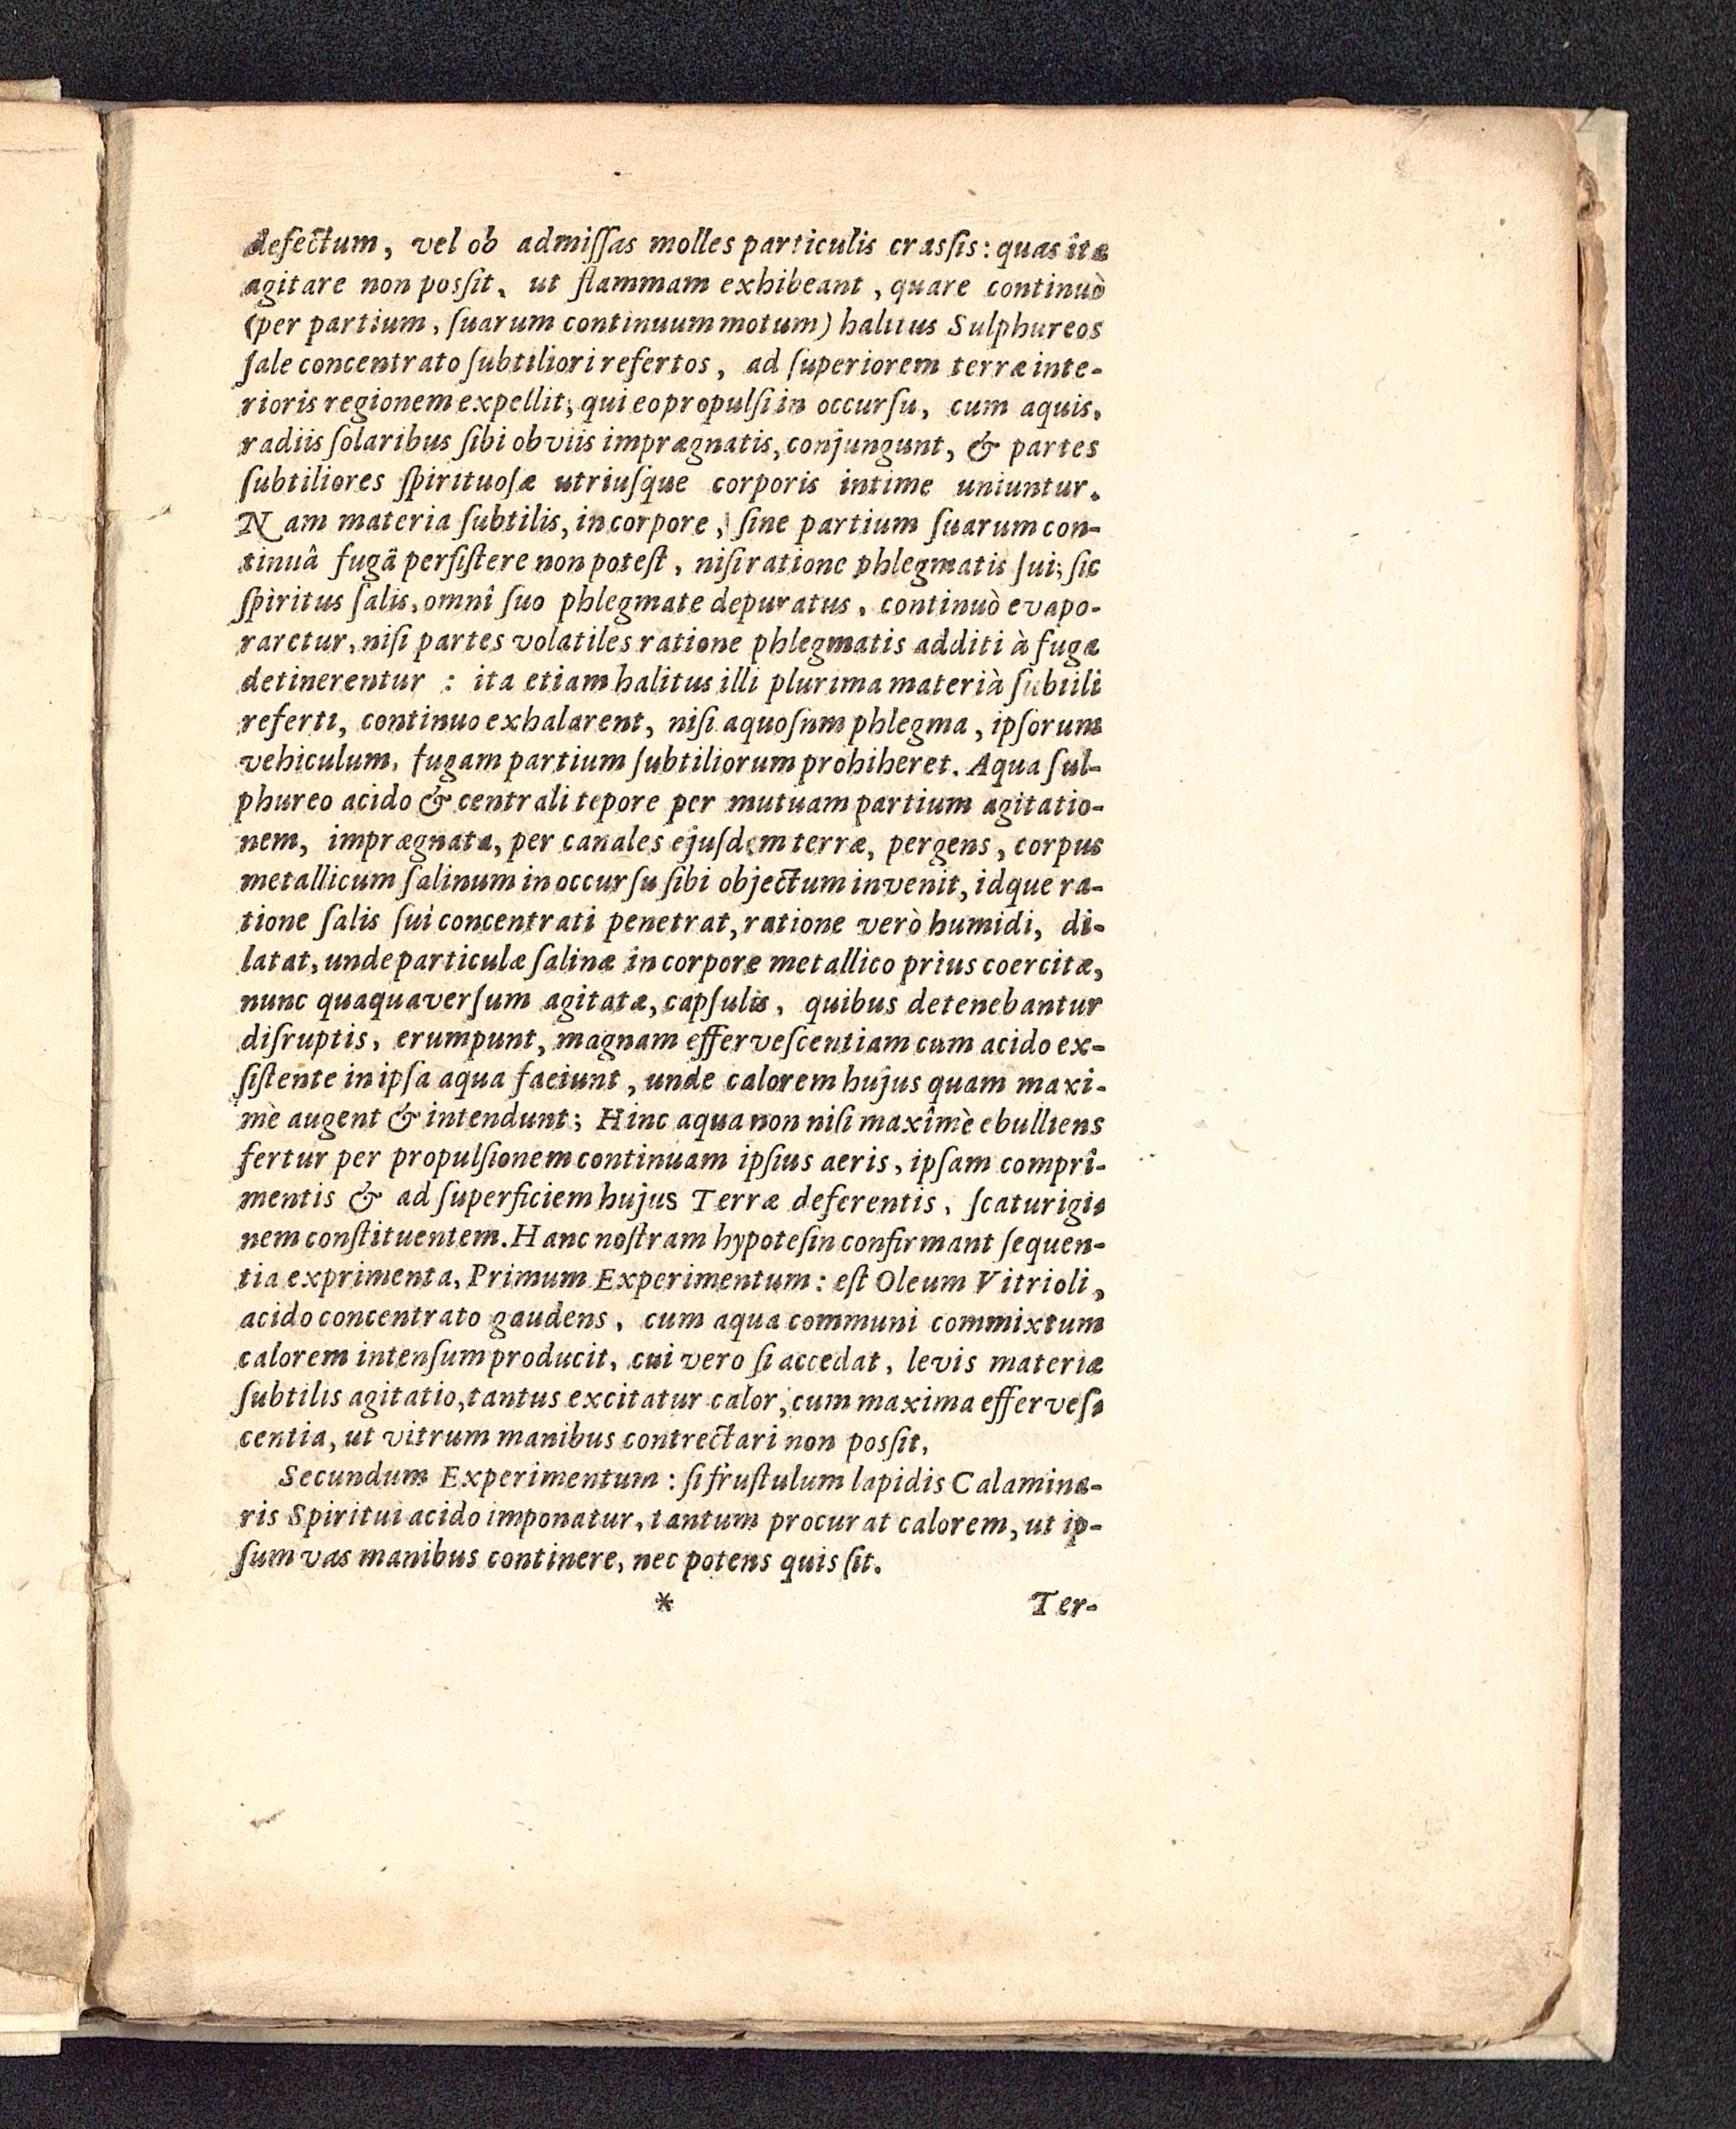 defectum, vel ob admiſſas molles particulis crasſis: quas ita
agitare non posſit, ut flammam exhibeant, quare continuò
(per partium, ſuarum continuum motum) halitus Sulphureos
ſale concentrato ſubtiliori refertos, ad ſuperiorem terræ inte-
rioris regionem expellit; qui eo propulſi in occurſu, cum aquis,
radiis ſolaribus ſibi obviis imprægnatis, conjungunt, & partes
ſubtiliores ſpirituoſæ utriuſque corporis intime uniuntur.
Nam materia ſubtilis, in corpore, ſine partium ſuarum con-
tinuâ fugâ perſiſtere non poteſt, niſi ratione phlegmatis ſui; ſic
ſpiritus ſalis, omni ſuo phlegmate depuratus, continuò evapo-
raretur, niſi partes volatiles ratione phlegmatis additi à fuga
detinerentur : ita etiam halitus illi plurima materià ſubtili
referti, continuo exhalarent, niſi aquoſum phlegma, ipſorum
vehiculum, fugam partium ſubtiliorum prohiheret. Aqua ſul-
phureo acido & centrali tepore per mutuam partium agitatio-
nem, imprægnata, per canales ejuſdem terræ, pergens, corpus
metallicum ſalinum in occurſu ſibi objectum invenit, idque ra-
tione ſalis ſui concentrati penetrat, ratione verò humidi, di-
latat, unde particulæ ſalinæ in corpore metallico prius coercitæ,
nunc quaquaverſum agitatæ, capſulis, quibus detenebantur
diſruptis, erumpunt, magnam efferveſcentiam cum acido ex-
ſiſtente in ipſa aqua faciunt, unde calorem hujus quam maxi-
mè augent & intendunt; Hinc aqua non niſi maximè ebulliens
fertur per propulſionem continuam ipſius aeris, ipſam compri-
mentis & ad ſuperficiem hujus Terræ deferentis, ſcaturigi-
nem conſtituentem. Hanc noſtram hypoteſin confirmant ſequen-
tia exprimenta, Primum Experimentum: eſt Oleum Vitrioli,
acido concentrato gaudens, cum aqua communi commixtum
calorem intenſum producit, cui vero ſi accedat, levis materiæ
ſubtilis agitatio, tantus excitatur calor, cum maxima efferveſ-
centia, ut vitrum manibus contrectari non posſit,
Secundum Experimentum: ſi fruſtulum lapidis Calamina-
ris Spiritui acido imponatur, tantum procurat calorem, ut ip-
ſum vas manibus continere, nec potens quis ſit.
* Ter-